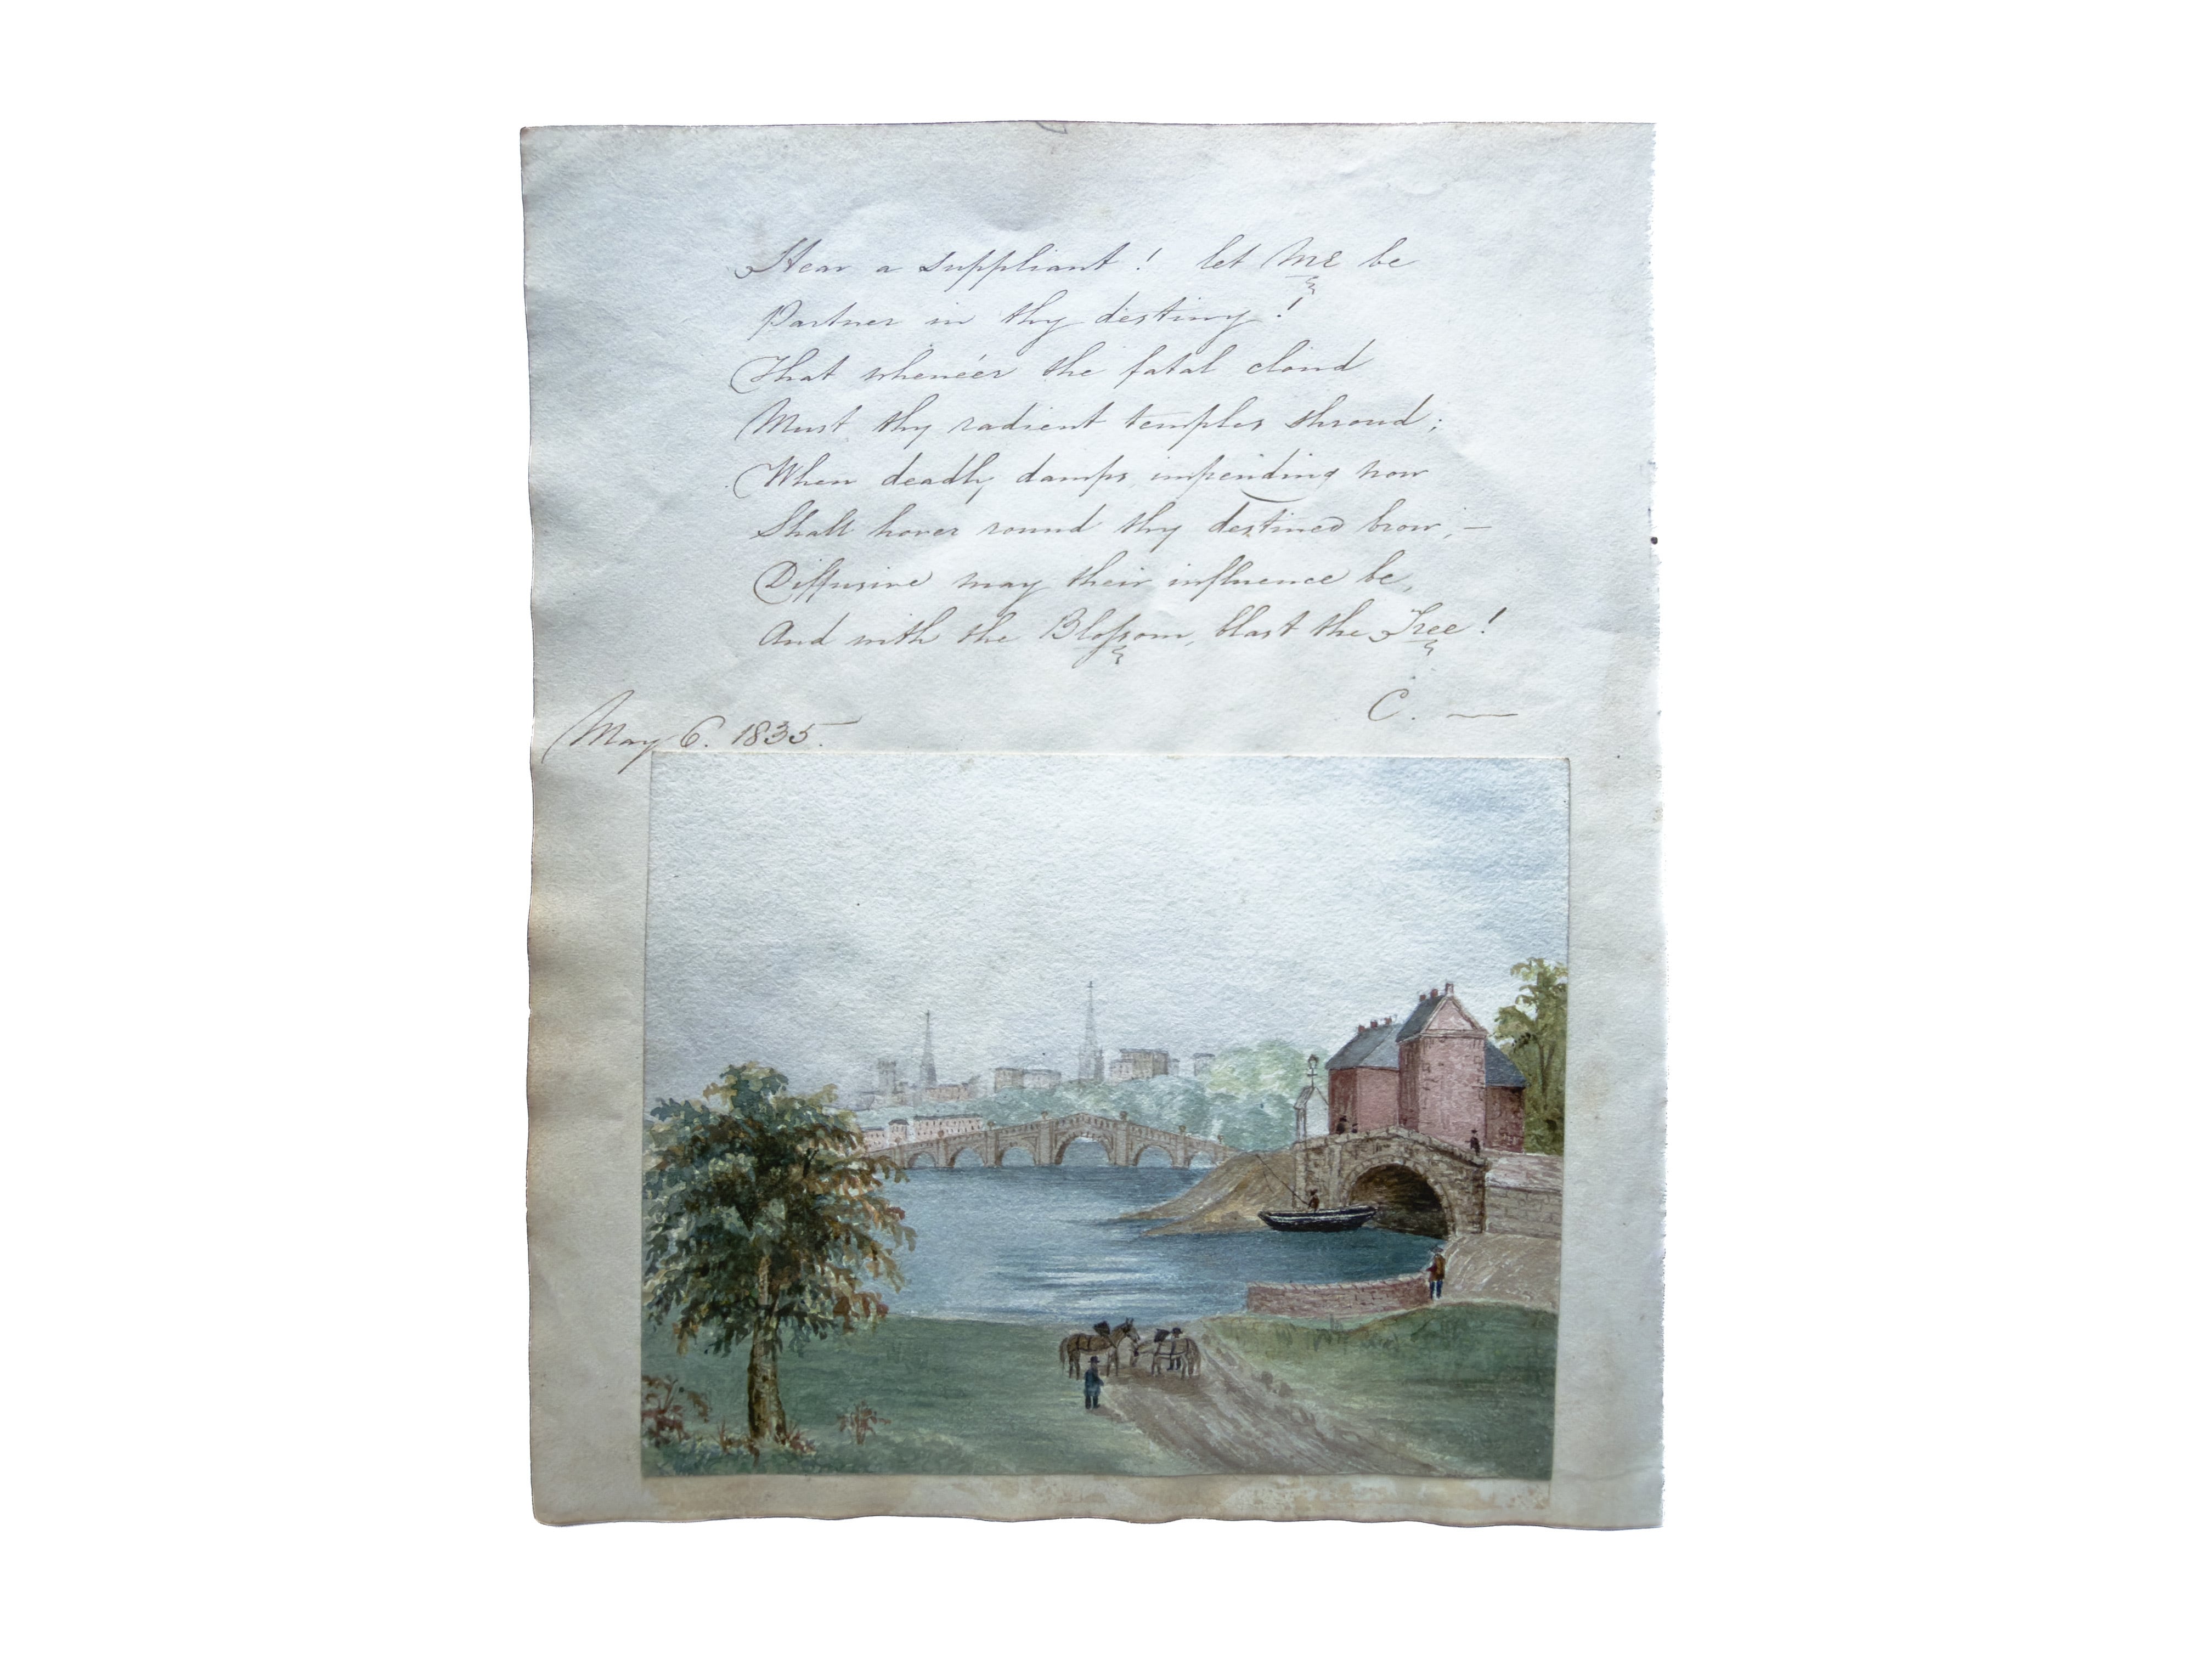 Hear a suppliant! let Me be
Partner in thy destiny!
That whene'er the fatal cloud
Must thy radient temples shroud;
When deadly damps impending now
Shall hover round thy destined brow;—
Diffusive may their influence be,
And with the Bloſsom, blast the Tree!
C. —
May 6. 1835.